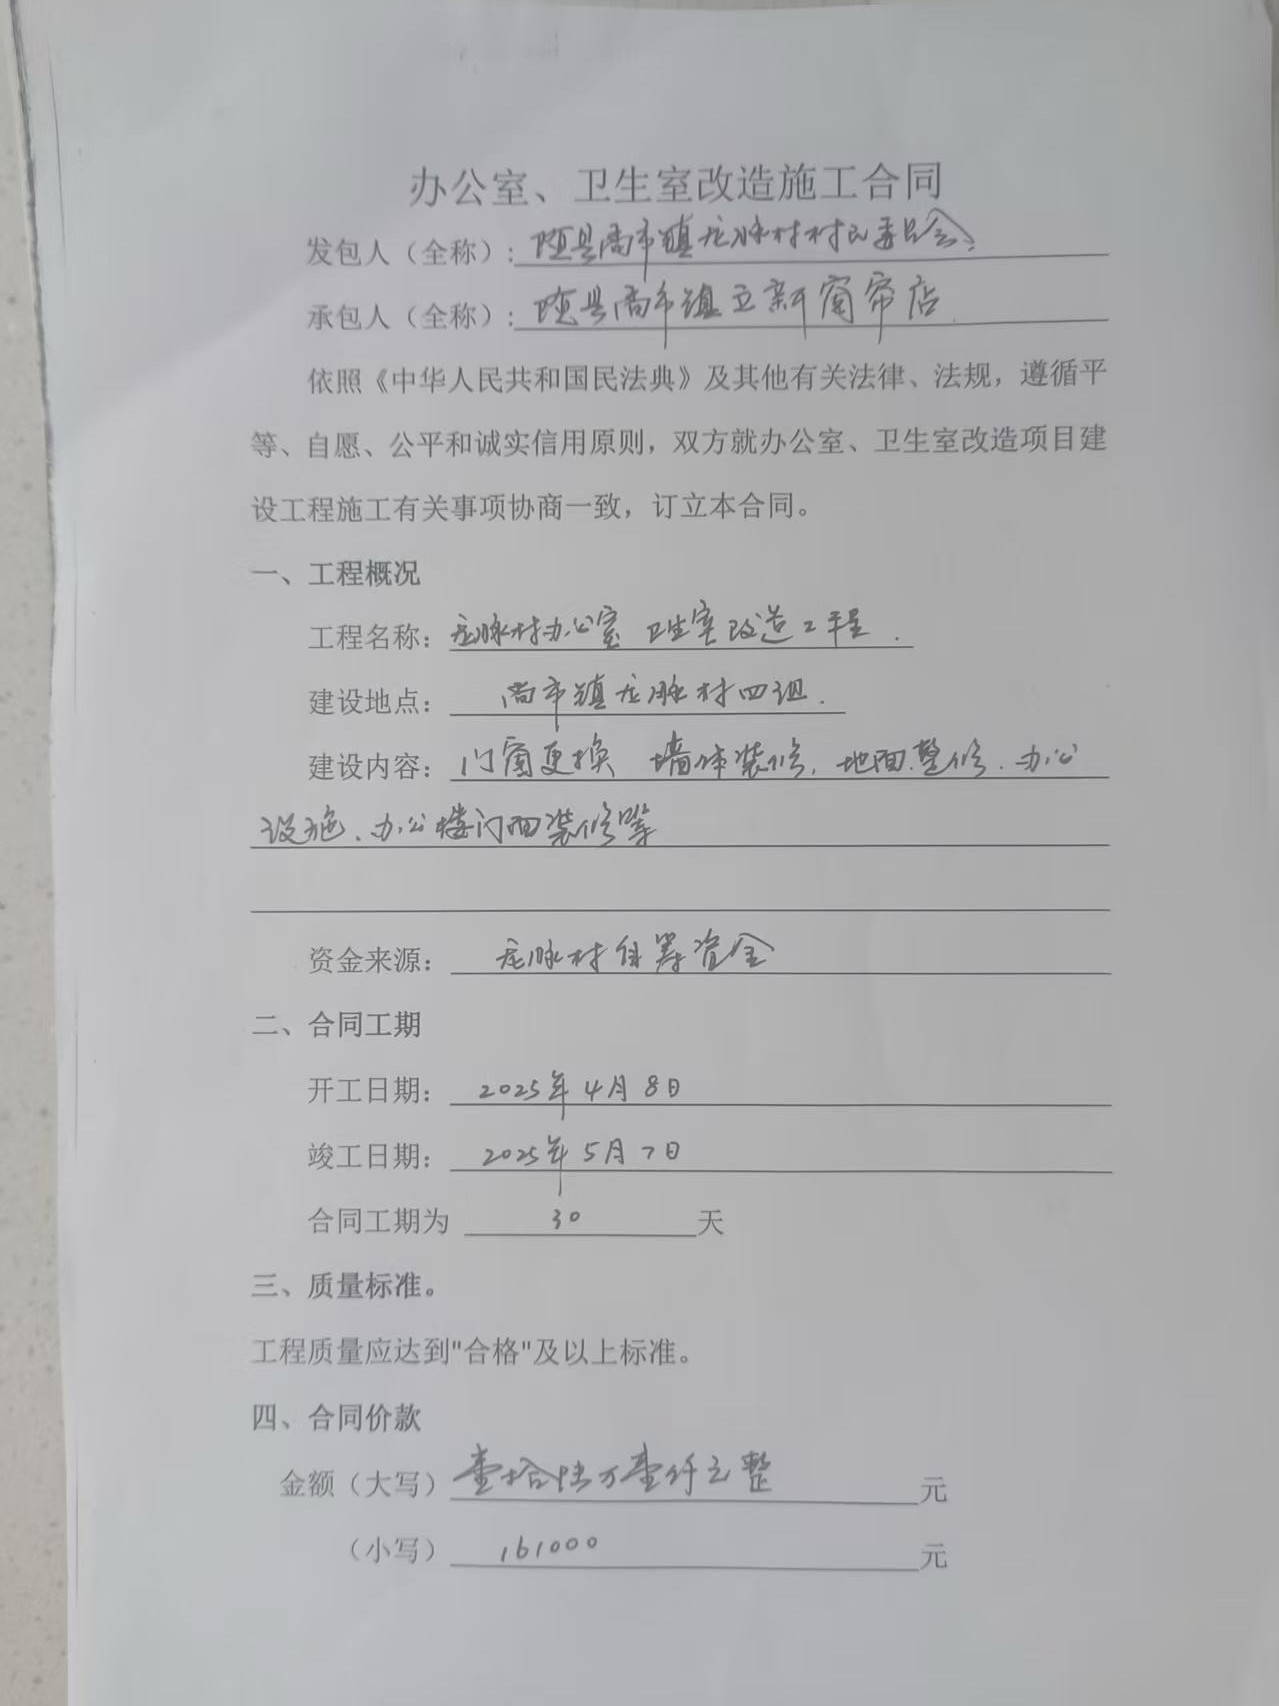 办公室、卫生室改造施工合同
发包人（全称）：随县尚市镇龙脉村村民委员会
承包人（全称）：随县尚市镇立新窗帘店
依照《中华人民共和国民法典》及其他有关法律、法规，遵循平
等、自愿、公平和诚实信用原则，双方就办公室、卫生室改造项目建
设工程施工有关事项协商一致，订立本合同。
一、工程概况
工程名称：龙脉村办公室 卫生室改造工程.
建设地点：尚市镇龙脉村四组.
建设内容：门窗更换 墙体装修、地面整修、办公
设施、办公楼门面装修等
资金来源：龙脉村自筹资金
二、合同工期
开工日期：2025年4月8日
竣工日期：2025年5月7日
合同工期为 30 天
三、质量标准。
工程质量应达到"合格"及以上标准。
四、合同价款
金额（大写）壹拾陆万壹仟元整 元
（小写）161000 元